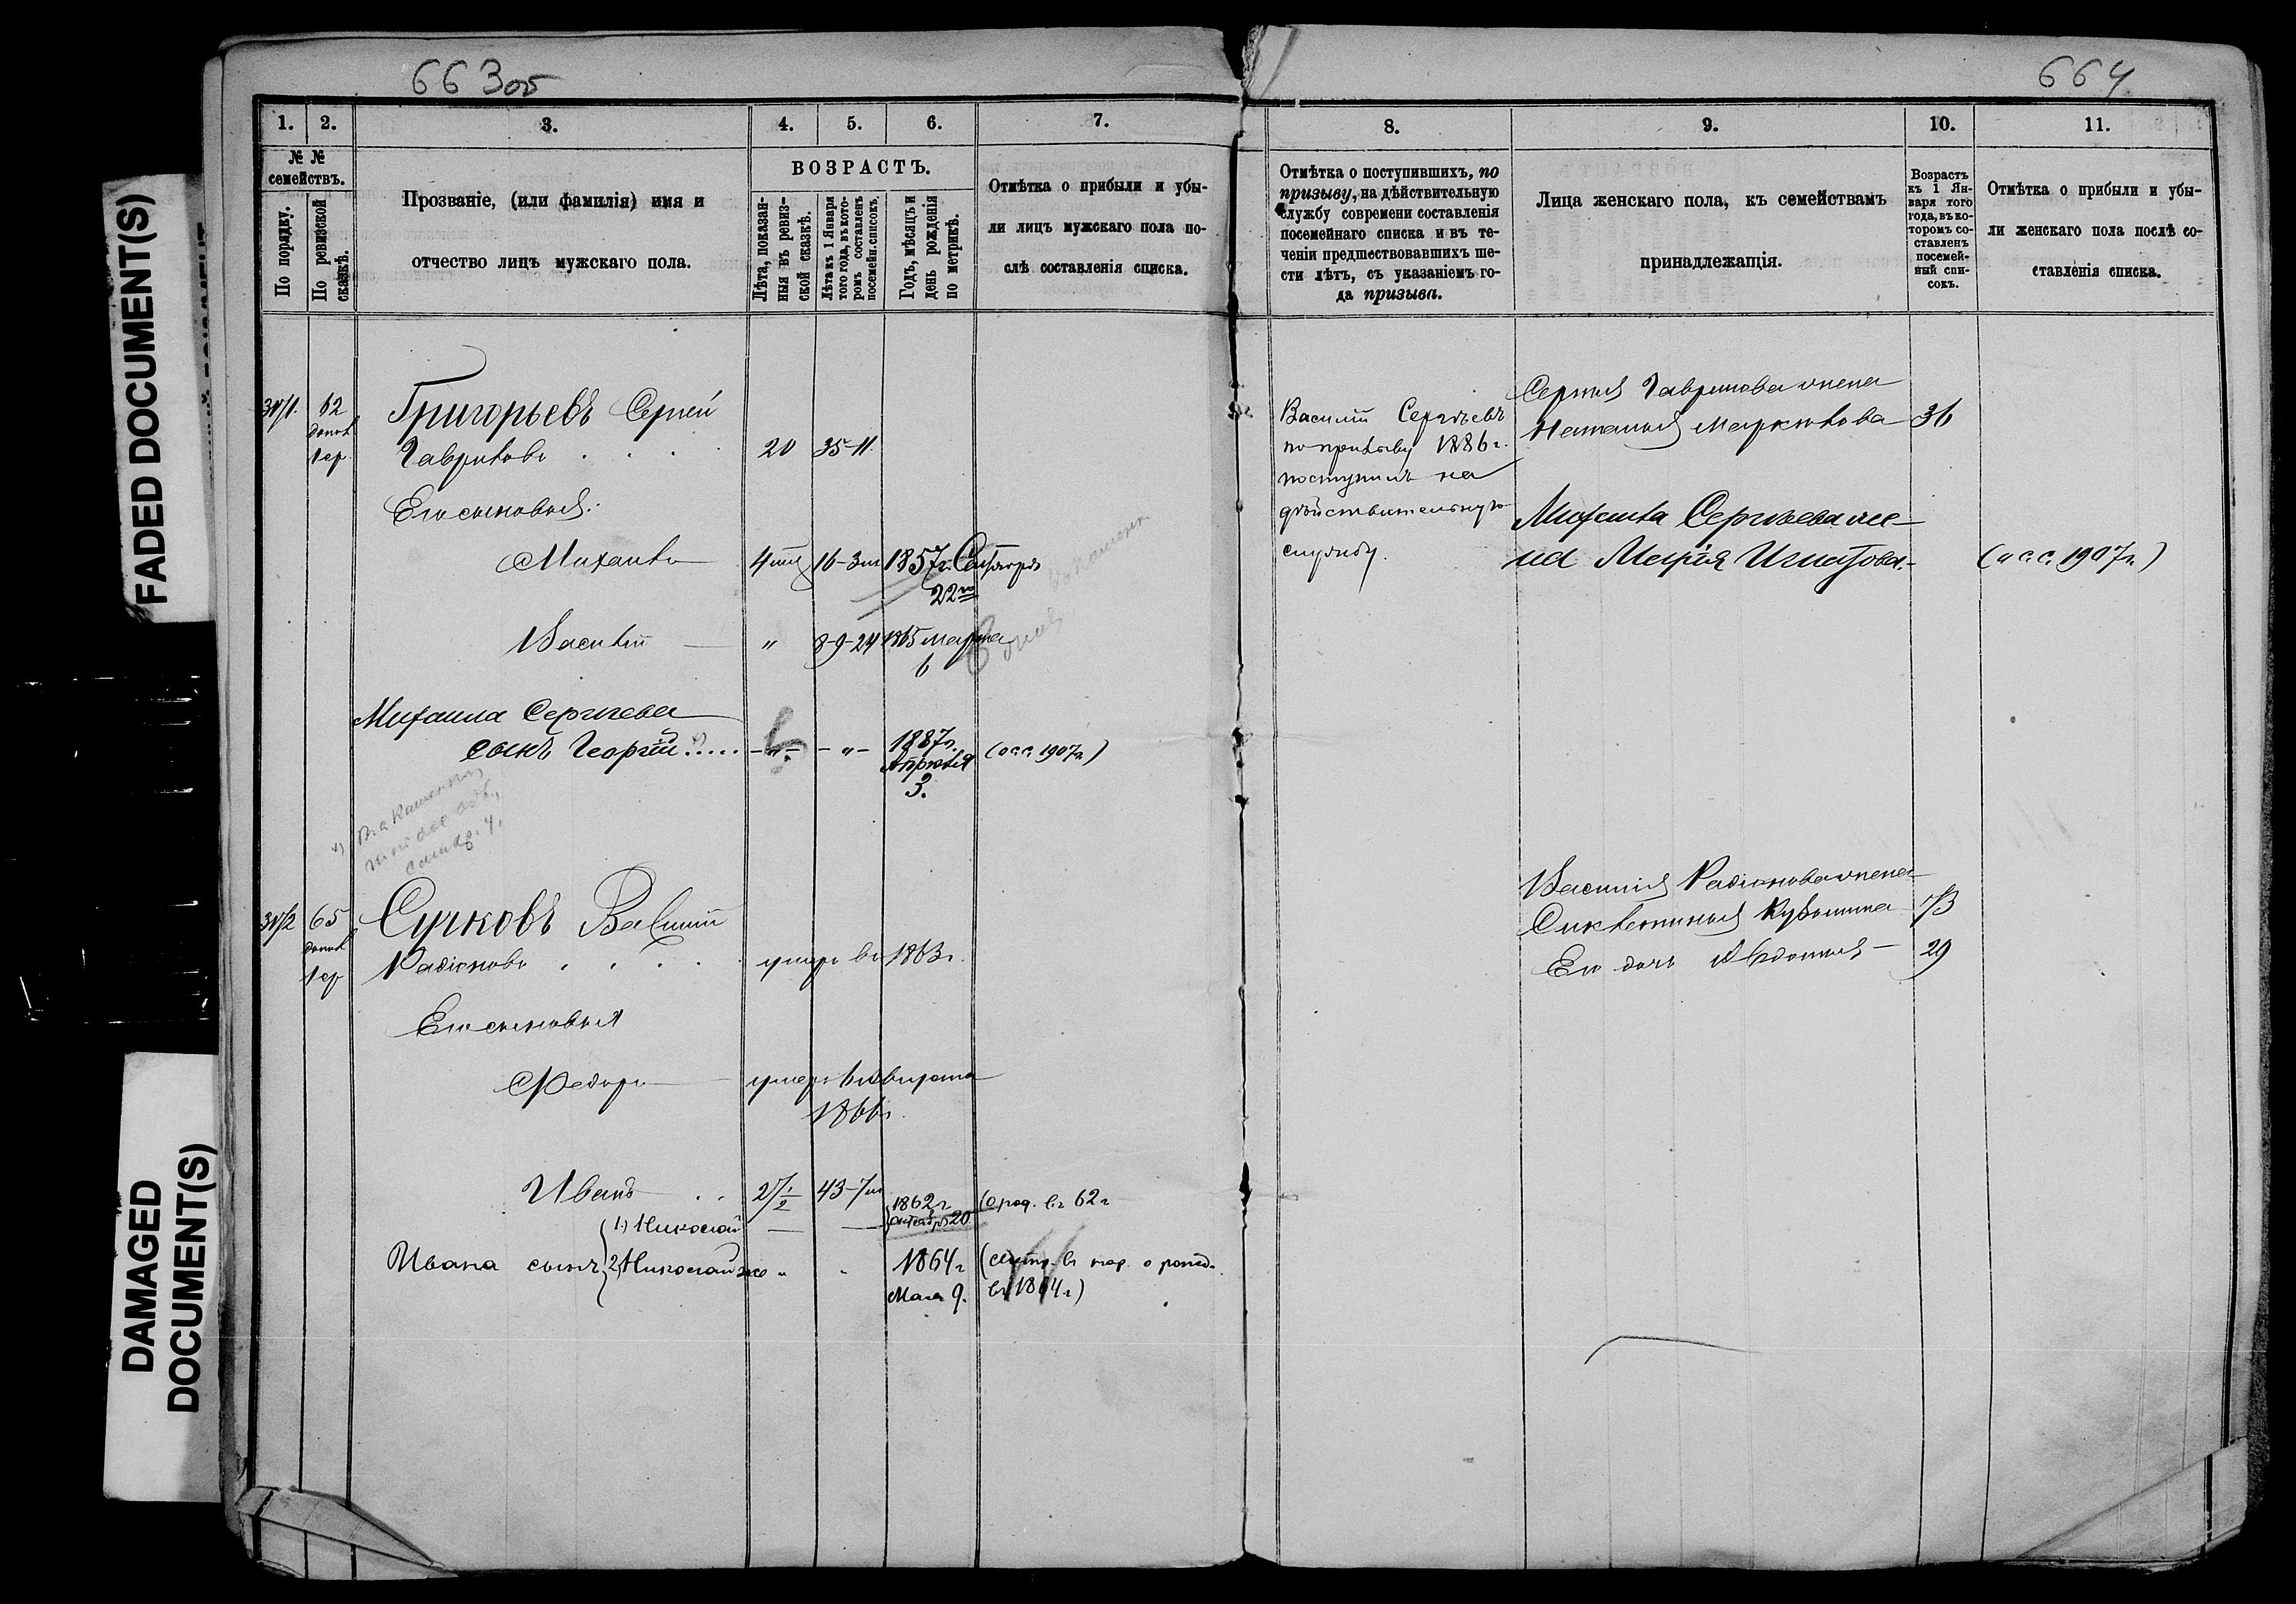 FADED DOCUMENT(S)
DAMAGED DOCUMENT(S)
663об
1. 2. 3. 4. 5. 6. 7.
№ № семействъ.
По порядку.
По ревизской сказкѣ.
Прозваніе, (или фамилія) имя и
отчество лицъ мужскаго пола.
ВОЗРАСТЪ.
Лѣта, показан-
ныя въ ревиз-
ской сказкѣ.
Лѣта къ 1 Января
того года, въ кото-
ромъ составленъ
посемейн. списокъ.
Годъ, мѣсяцъ и
день рожденія
по метрикѣ.
Отмѣтка о прибыли и убы-
ли лицъ мужскаго пола по-
слѣ составленія списка.
62 Григорьевъ Сергей
Гаврилова 20 35-11
Его сыновья:
Михаилъ 16-3 1857г. Сентября
22го
Василій " 8-9-24 1865 марта
6
Михаила Сергѣева
сынъ Георгій..... -"- -"- 1887г. (о с.с. 1907г.)
Апрѣля
3.
65 Сучковъ Василий
Радіоновъ умеръ въ 1863г.
Его сыновья
Федоръ умеръ
1866г
Иванъ 2 1/2 43-7 1862г (о род. въ 62г
1) Николай — — октября 20
Ивана сынъ 2) Николай же " " 1864г о рожд.
Мая 9. въ 1864г)
664
8. 9. 10. 11.
Отмѣтка о поступившихъ, по
призыву, на дѣйствительную
службу современи составленія
посемейнаго списка и въ те-
ченіи предшествовавшихъ ше-
сти лѣтъ, съ указаніемъ го-
да призыва.
Лица женскаго пола, къ семействамъ
принадлежащія.
Возрастъ
къ 1 Ян-
варя того
года, въ ко-
торомъ со-
ставленъ
посемей-
ный спи-
сокъ.
Отмѣтка о прибыли и убы-
ли женскаго пола послѣ со-
ставленія списка.
Василій Сергѣевъ
по призыву 1886г.
поступилъ на
дѣйствительную
службу.
Сергея Гаврилова жена
Наталья 36
Михаила Сергѣева же-
на Марія Игнатова.- (о с.с. 1907г.)
Василія Радіонова жена
73
Его дочь Авдотья — 29